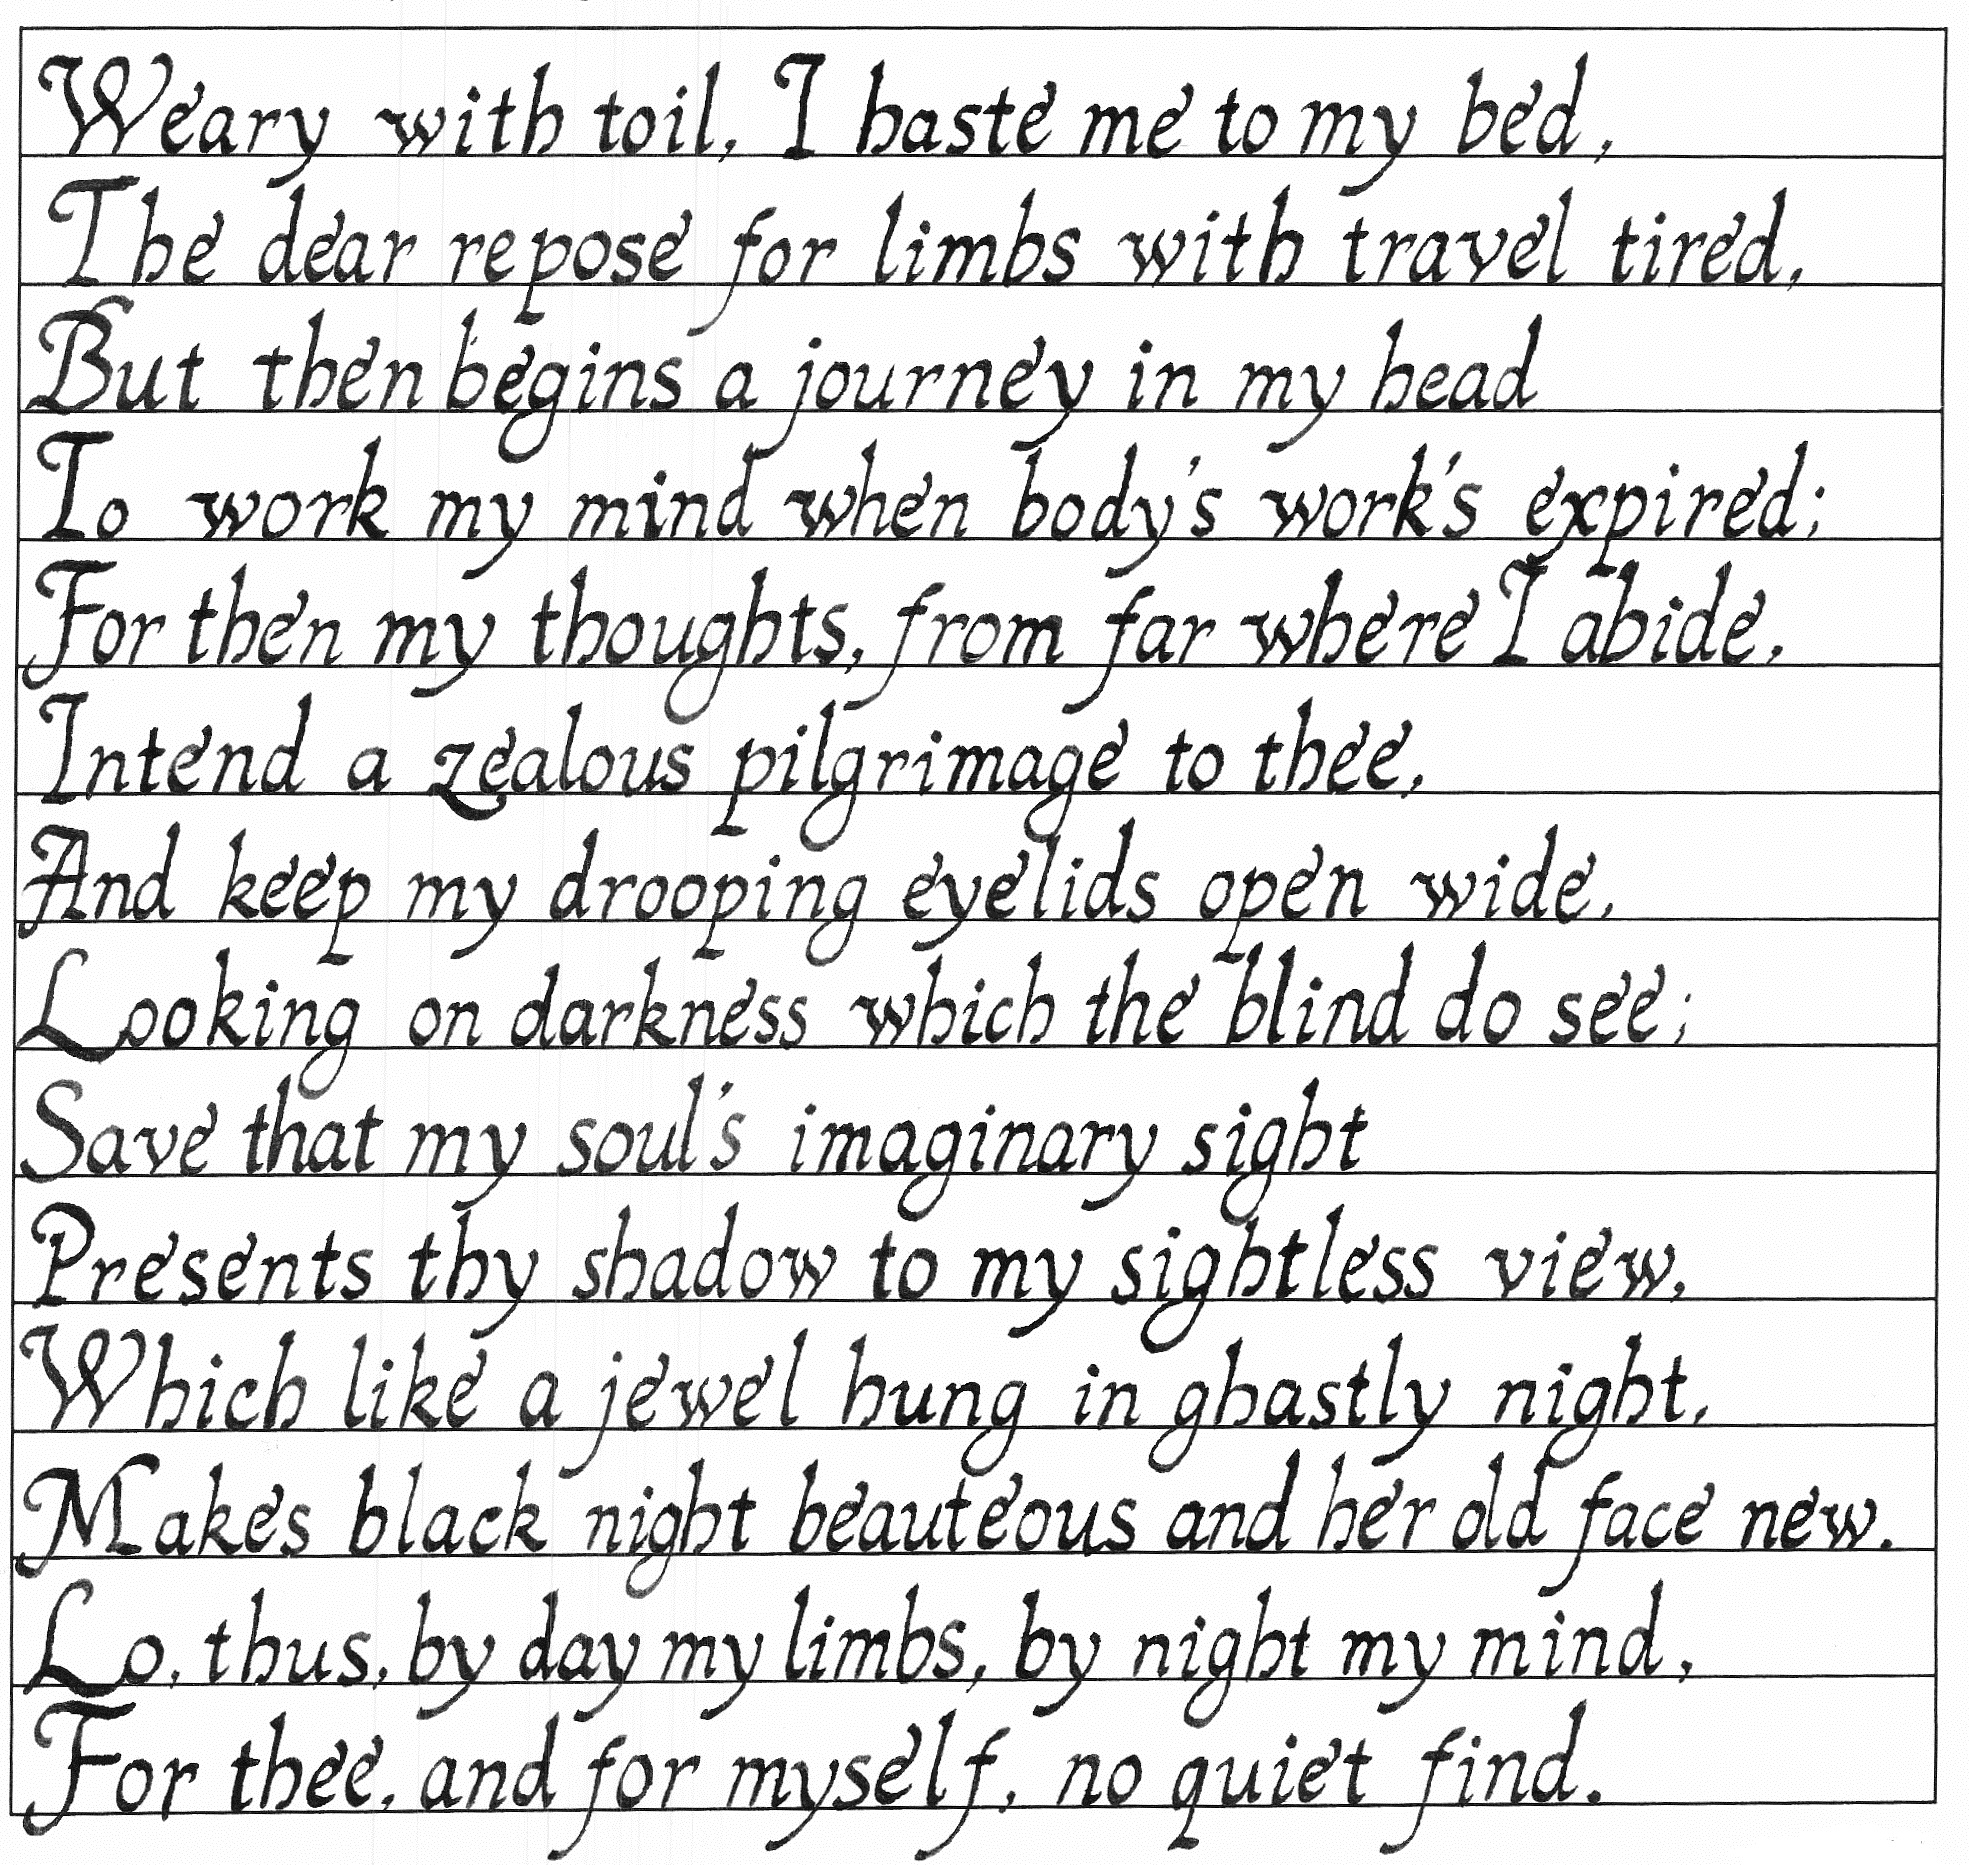 Weary with toil, I haste me to my bed,
The dear repose for limbs with travel tired,
But then begins a journey in my head
To work my mind when body's work's expired;
For then my thoughts, from far where I abide,
Intend a zealous pilgrimage to thee,
And keep my drooping eyelids open wide,
Looking on darkness which the blind do see;
Save that my soul's imaginary sight
Presents thy shadow to my sightless view,
Which like a jewel hung in ghastly night,
Makes black night beauteous and her old face new.
Lo, thus, by day my limbs, by night my mind,
For thee, and for myself, no quiet find.